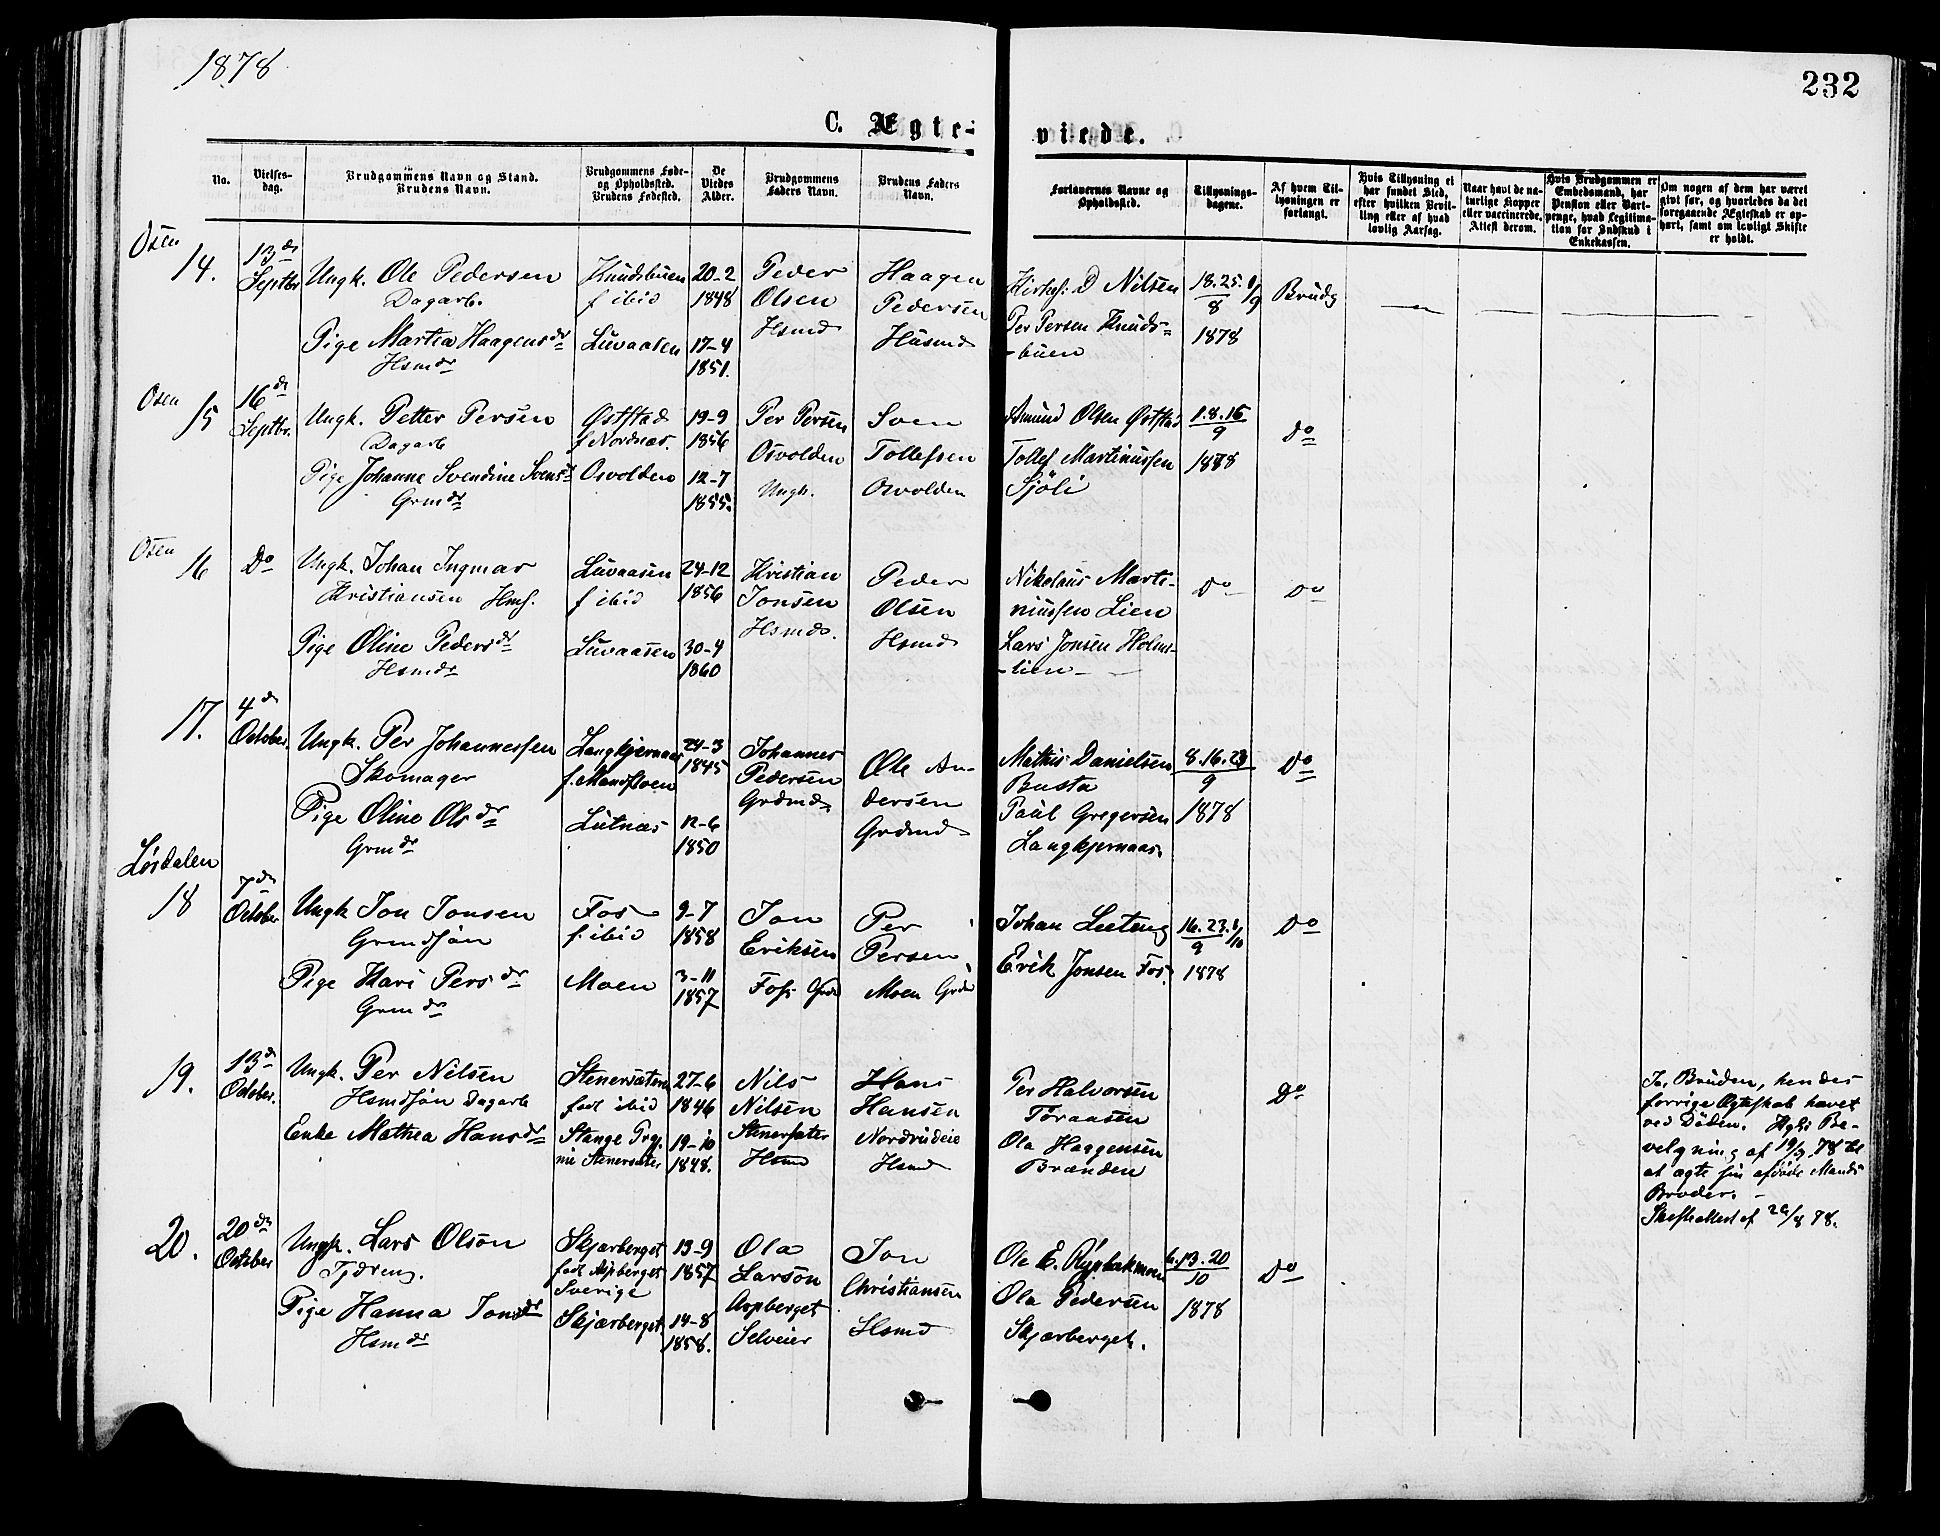 1878
232
C. Ægte-
viede.
No.
Vielses-
dag.
Brudgommens Navn og Stand.
Brudens Navn.
Brudgommens Føde-
og Opholdssted.
Brudens Fødested.
De
Viedes
Alder.
Brudgommens
Faders Navn.
Brudens Faders
Navn.
Forlovernes Navne og
Opholdssted.
Tillysnings-
dagene.
Af hvem Til-
lysningen er
forlangt.
Hvis Tillysning ei
har fundet Sted,
efter hvilken Bevil-
ling eller af hvad
lovlig Aarsag.
Naar havt de na-
turlige Kopper
eller vaccinerede.
Attest derom.
Hvis Brudgommen er
Embedsmand, har
Pension eller Vart-
penge, hvad Legitima-
tion for Indskud i
Enkekassen.
Om nogen af dem har været
givt før, og hvorledes da det
foregaaende Ægteskab er op-
hørt, samt om lovligt Skifte
er holdt.
Osen
14.
13de
Septbr
Ungk. Ole Pedersen
Dagarb.
Pige Martia Haagensdr
Hsmdr
Knudsbuen
f ibid
Luvaasen
20-2
1848
17-4
1851.
Peder
Olsen
Hsmd
Haagen
Pedersen
Husmd
Kirkes: D Nilsen
Per Persen Knuds-
-buen
18.25. 1/9
8
1878
Brudg
Osen
15
16de
Septbr.
Ungk. Petter Persen
Dagarb
Pige Johanne Svendine Svensd
Grmdr
Øststad
f Nordnæs.
Osvolden
19-9
1856
12-7
1855.
Per Persen
Osvolden
Ungk.
Sven
Tollefsen
Osvolden
Asmund Olsen Øststad
Tollef Martinussen
Sjöli
1.8.15
9
1878
Do
Osen
16
Do
Ungk. Johan Ingmar
Kristiansen Hmf.
Pige Oline Pedersdr
Hsmdr
Luvaasen
f ibid
Luvaasen
24-12
1856
30-4
1860
Kristian
Jonsen
Hsmd.
Peder
Olsen
Hsmd
Nikolaus Marti-
nussen Lien
Lars Jonsen Holm-
-lien-
Do
Do
17.
4de
October.
Ungk. Per Johannessen
Skomager
Pige Oline Olsdr
Grmdr
Langkjernaas
f. Mandfloen
Lutnæs
24-3
1845
12-6
1850
Johannes
Pedersen
Grdmd
Ole An-
dersen
Grdmd
Mathis Danielsen
Busta
Paul Gregersen
Langkjernaas.
8.16.23
9
1878
Do
Lørdalen
18
7de
October
Ungk Jon Jonsen
Grmdsøn
Pige Kari Persdr
Grmdr
Fos
f. ibid
Moen
9-7
1858
3-11
1857
Jon
Eriksen
Foss Grd
Per
Persen
Moen Grd
Johan Leteng
Erik Jonsen Fos
16.23. 1/10
9
1878
Do
19.
13de
October.
Ungk. Per Nilsen
Hsmdsøn Dagarb
Enke Mathea Hansdr
Stenersæteren
født ibid
Stange Prg.
nu Stenersæter
27-6
1846
19-10
1848.
Nils
Nilsen
Stenersæter
Hsmd
Hans
Hansen
Nordrudeie
Hsmd
Per Halvorsen
Toraasen
Ola Haagensen
Brænden
Do
Ja. Bruden, hendes
forrige Ægteskab hævet
ved Døden. Kgl. Be-
velgning af 19/9 78 til
at ægte sin afdøde Mands
Broder. -
Skifteattest af 20/8 78.
20.
20de
October
Ungk. Lars Olson
Tjæreng.
Pige Hanna Jonsdr
Hsmdr
Skjærberget
født Aspberget
Sverige
Skjærberget
13-9
1857
14-8
1858.
Ola
Larson
Aspberget
Selveier
Jon
Christiansen
Hsmd
Ole E. Rysbakmoen
Ola Pedersen
Skjærberget.
6.13.20
10
1878
Do